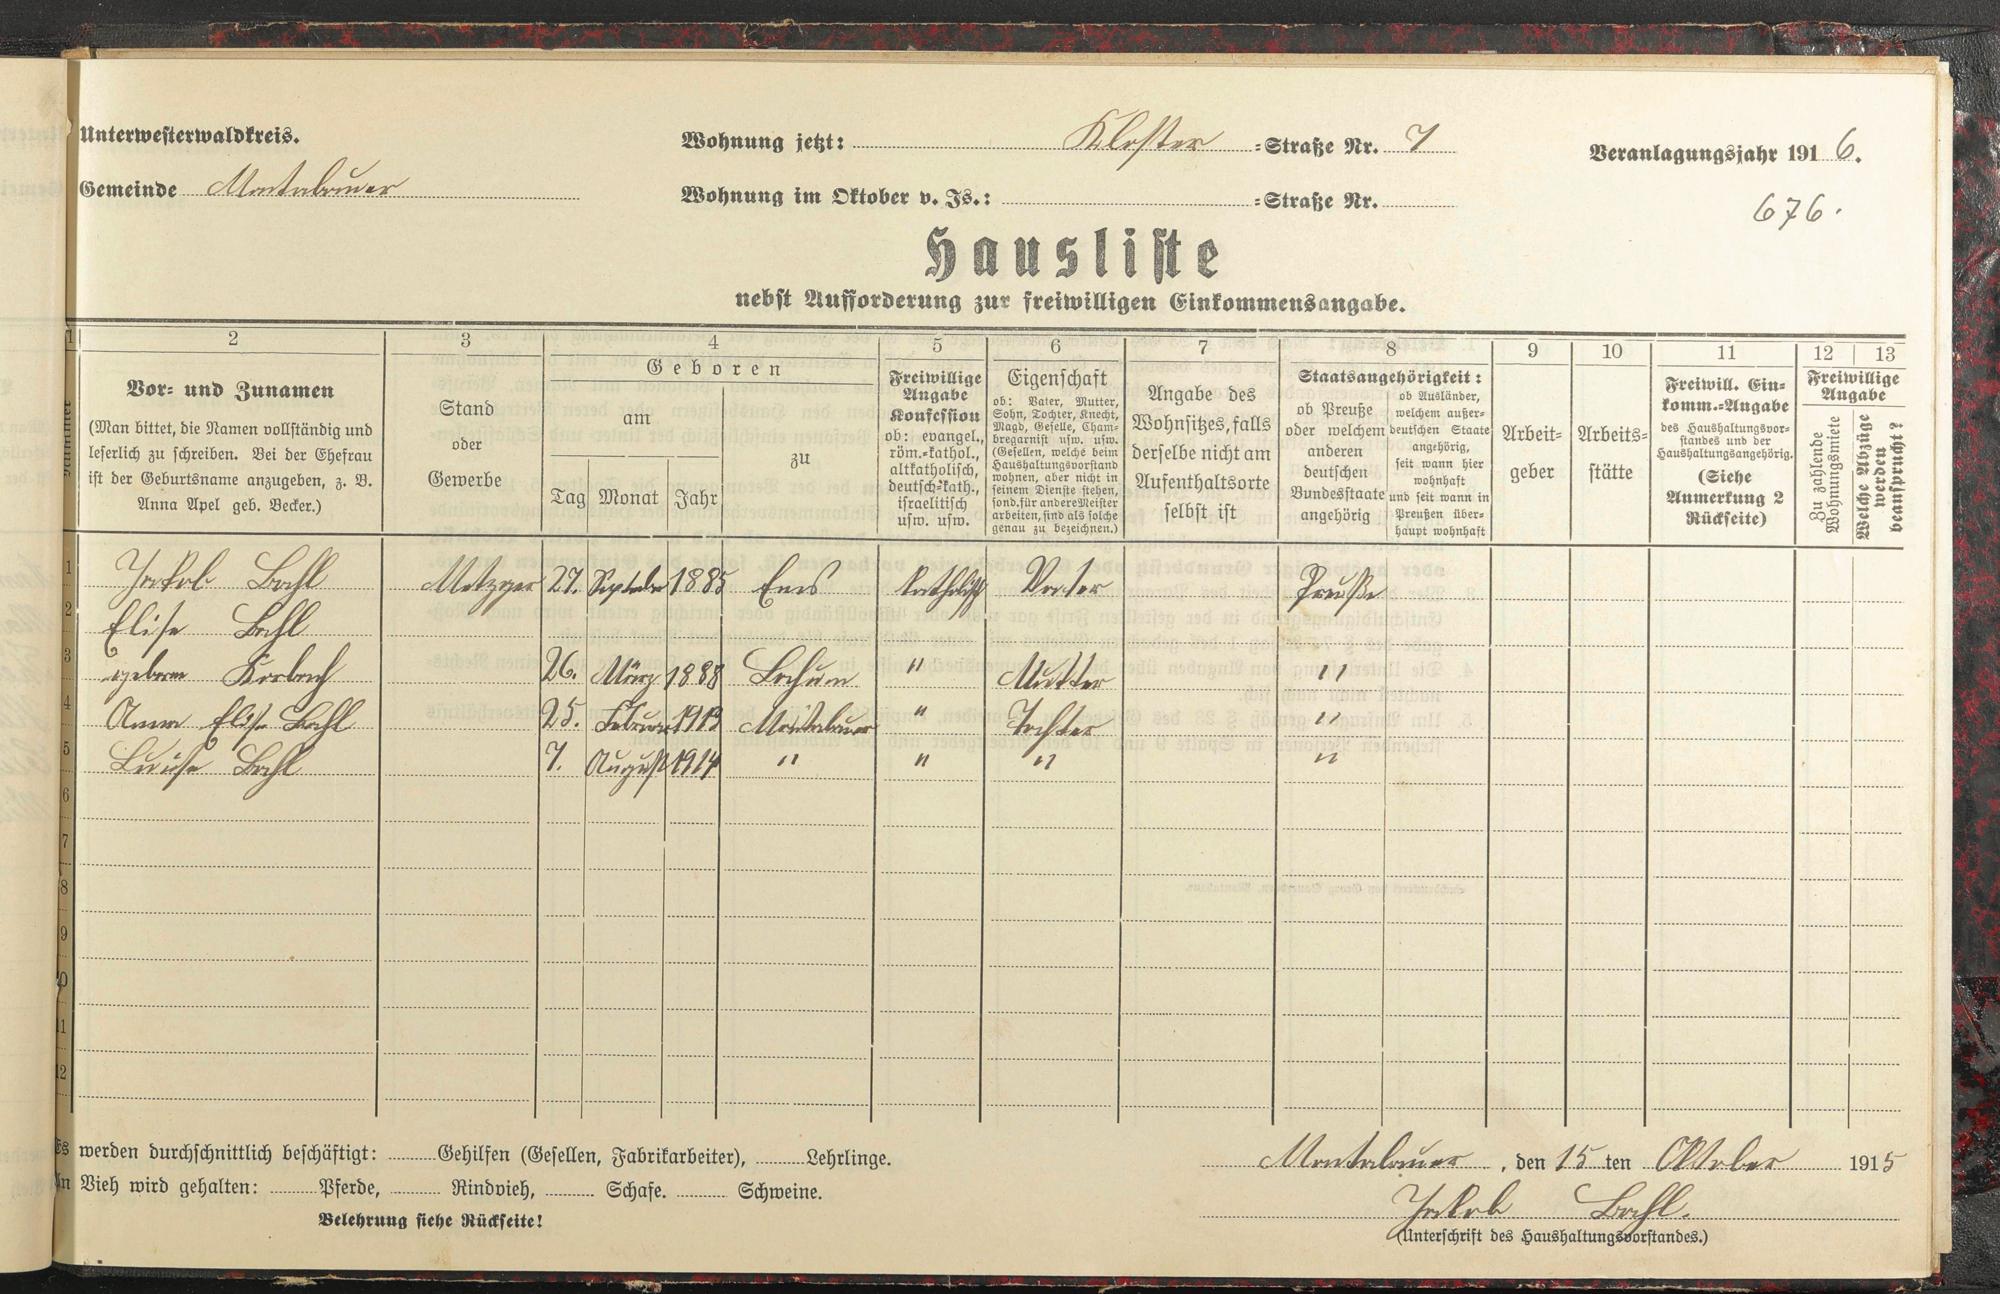 Unterwesterwaldkreis.
Gemeinde Montabaur
Wohnung jetzt: Kloster =Straße Nr. 7
Wohnung im Oktober v. Js.: =Straße Nr.
Veranlagungsjahr 1916.
676.
Hausliste
nebst Aufforderung zur freiwilligen Einkommensangabe.
1
Nummer
2
Vor= und Zunamen
(Man bittet, die Namen vollständig und
leserlich zu schreiben. Bei der Ehefrau
ist der Geburtsname anzugeben, z. B.
Anna Apel geb. Becker.)
3
Stand
oder
Gewerbe
4
Geboren
am
Tag Monat Jahr
zu
5
Freiwillige
Angabe
Konfession
ob: evangel.,
röm.=kathol.,
altkatholisch,
deutsch=kath.,
israelitisch
usw. usw.
6
Eigenschaft
ob: Vater, Mutter,
Sohn, Tochter, Knecht,
Magd, Geselle, Cham=
bregarnist usw. usw.
(Gesellen, welche beim
Haushaltungsvorstand
wohnen, aber nicht in
seinem Dienste stehen,
sond. für andere Meister
arbeiten, sind als solche
genau zu bezeichnen.)
7
Angabe des
Wohnsitzes, falls
derselbe nicht am
Aufenthaltsorte
selbst ist
8
Staatsangehörigkeit:
ob Preuße
oder welchem
anderen
deutschen
Bundesstaate
angehörig
ob Ausländer,
welchem außer=
deutschen Staate
angehörig,
seit wann hier
wohnhaft
und seit wann in
Preußen über=
haupt wohnhaft
9
Arbeit=
geber
10
Arbeits=
stätte
11
Freiwill. Ein=
komm.=Angabe
des Haushaltungsvor=
standes und der
Haushaltungsangehörig.
(Siehe
Anmerkung 2
Rückseite)
12 13
Freiwillige
Angabe
Zu zahlende
Wohnungsmiete
Welche Abzüge
werden
beansprucht?
1 Jakob Bahl Metzger 27. September 1885 Ems katholisch Vater Preuße
2 Elise Bahl
3 geborne Korbach 26. März 1888 Bochum " Mutter "
4 Anna Elise Bahl 25. Februar 1913 Montabaur " Tochter "
5 Luise Bahl 7. August 1914 " " " "
6
7
8
9
10
11
12
Es werden durchschnittlich beschäftigt: Gehilfen (Gesellen, Fabrikarbeiter), Lehrlinge.
An Vieh wird gehalten: Pferde, Rindvieh, Schafe. Schweine.
Belehrung siehe Rückseite!
Montabaur, den 15ten Oktober 1915
Jakob Bahl.
(Unterschrift des Haushaltungsvorstandes.)